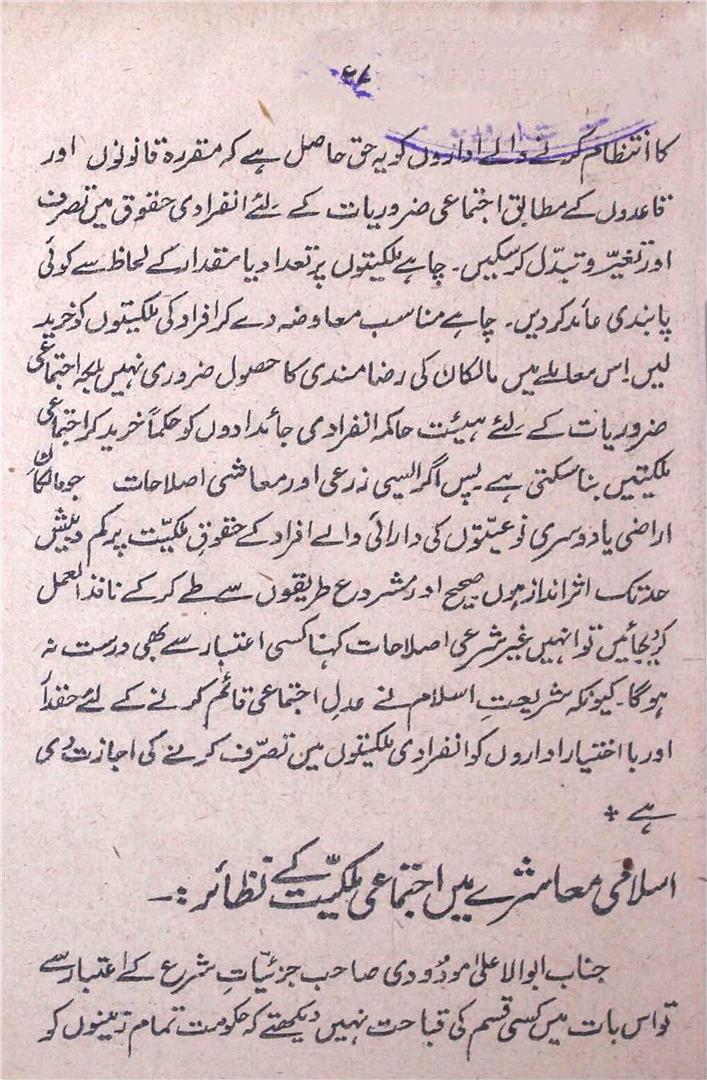 ۲۸
کا انتظام کرنے والے اداروں کو یہ حق حاصل ہے کہ مقررہ قانونوں اور
قاعدوں کے مطابق اجتماعی ضروریات کے لئے انفرادی حقوق میں تصرف
اور تغیّر و تبدّل کرسکیں۔ چاہے ملکیتوں پر تعداد یا مقدار کے لحاظ سے کوئی
پابندی عائد کردیں۔ چاہے مناسب معاوضہ دے کر افراد کی ملکیتوں کو خرید
لیں۔ اِس معاملے میں مالکان کی رضامندی کا حصول ضروری نہیں بلکہ اجتماعی
ضروریات کے لئے ہیئت حاکمہ انفرادی جائدادوں کو حکماً خرید کر اجتماعی
ملکیتیں بنا سکتی ہے۔ پس اگر ایسی زرعی اور معاشی اصلاحات جو مالکانِ
اراضی یا دوسری نوعیّتوں کی دارائی والے افراد کے حقوقِ ملکیّت پر کم و بیش
حد تک اثر انداز ہوں صحیح اور مشروع طریقوں سے طے کرکے نافذ العمل
کردیجائیں تو انہیں غیر شرعی اصلاحات کہنا کسی اعتبار سے بھی درست نہ
ہوگا۔ کیونکہ شریعتِ اسلام نے عدلِ اجتماعی قائم کرنے کے لئے حقدار
اور بااختیار اداروں کو انفرادی ملکیتوں میں تصرّف کرنے کی اجازت دی
ہے *
اسلامی معاشرے میں اجتماعی ملکیّت کے نظائر :۔
جناب ابوالاعلیٰ مودُودی صاحب جزئیّاتِ شرع کے اعتبار سے
تو اس بات میں کسی قسم کی قباحت نہیں دیکھتے کہ حکومت تمام زمینوں کو